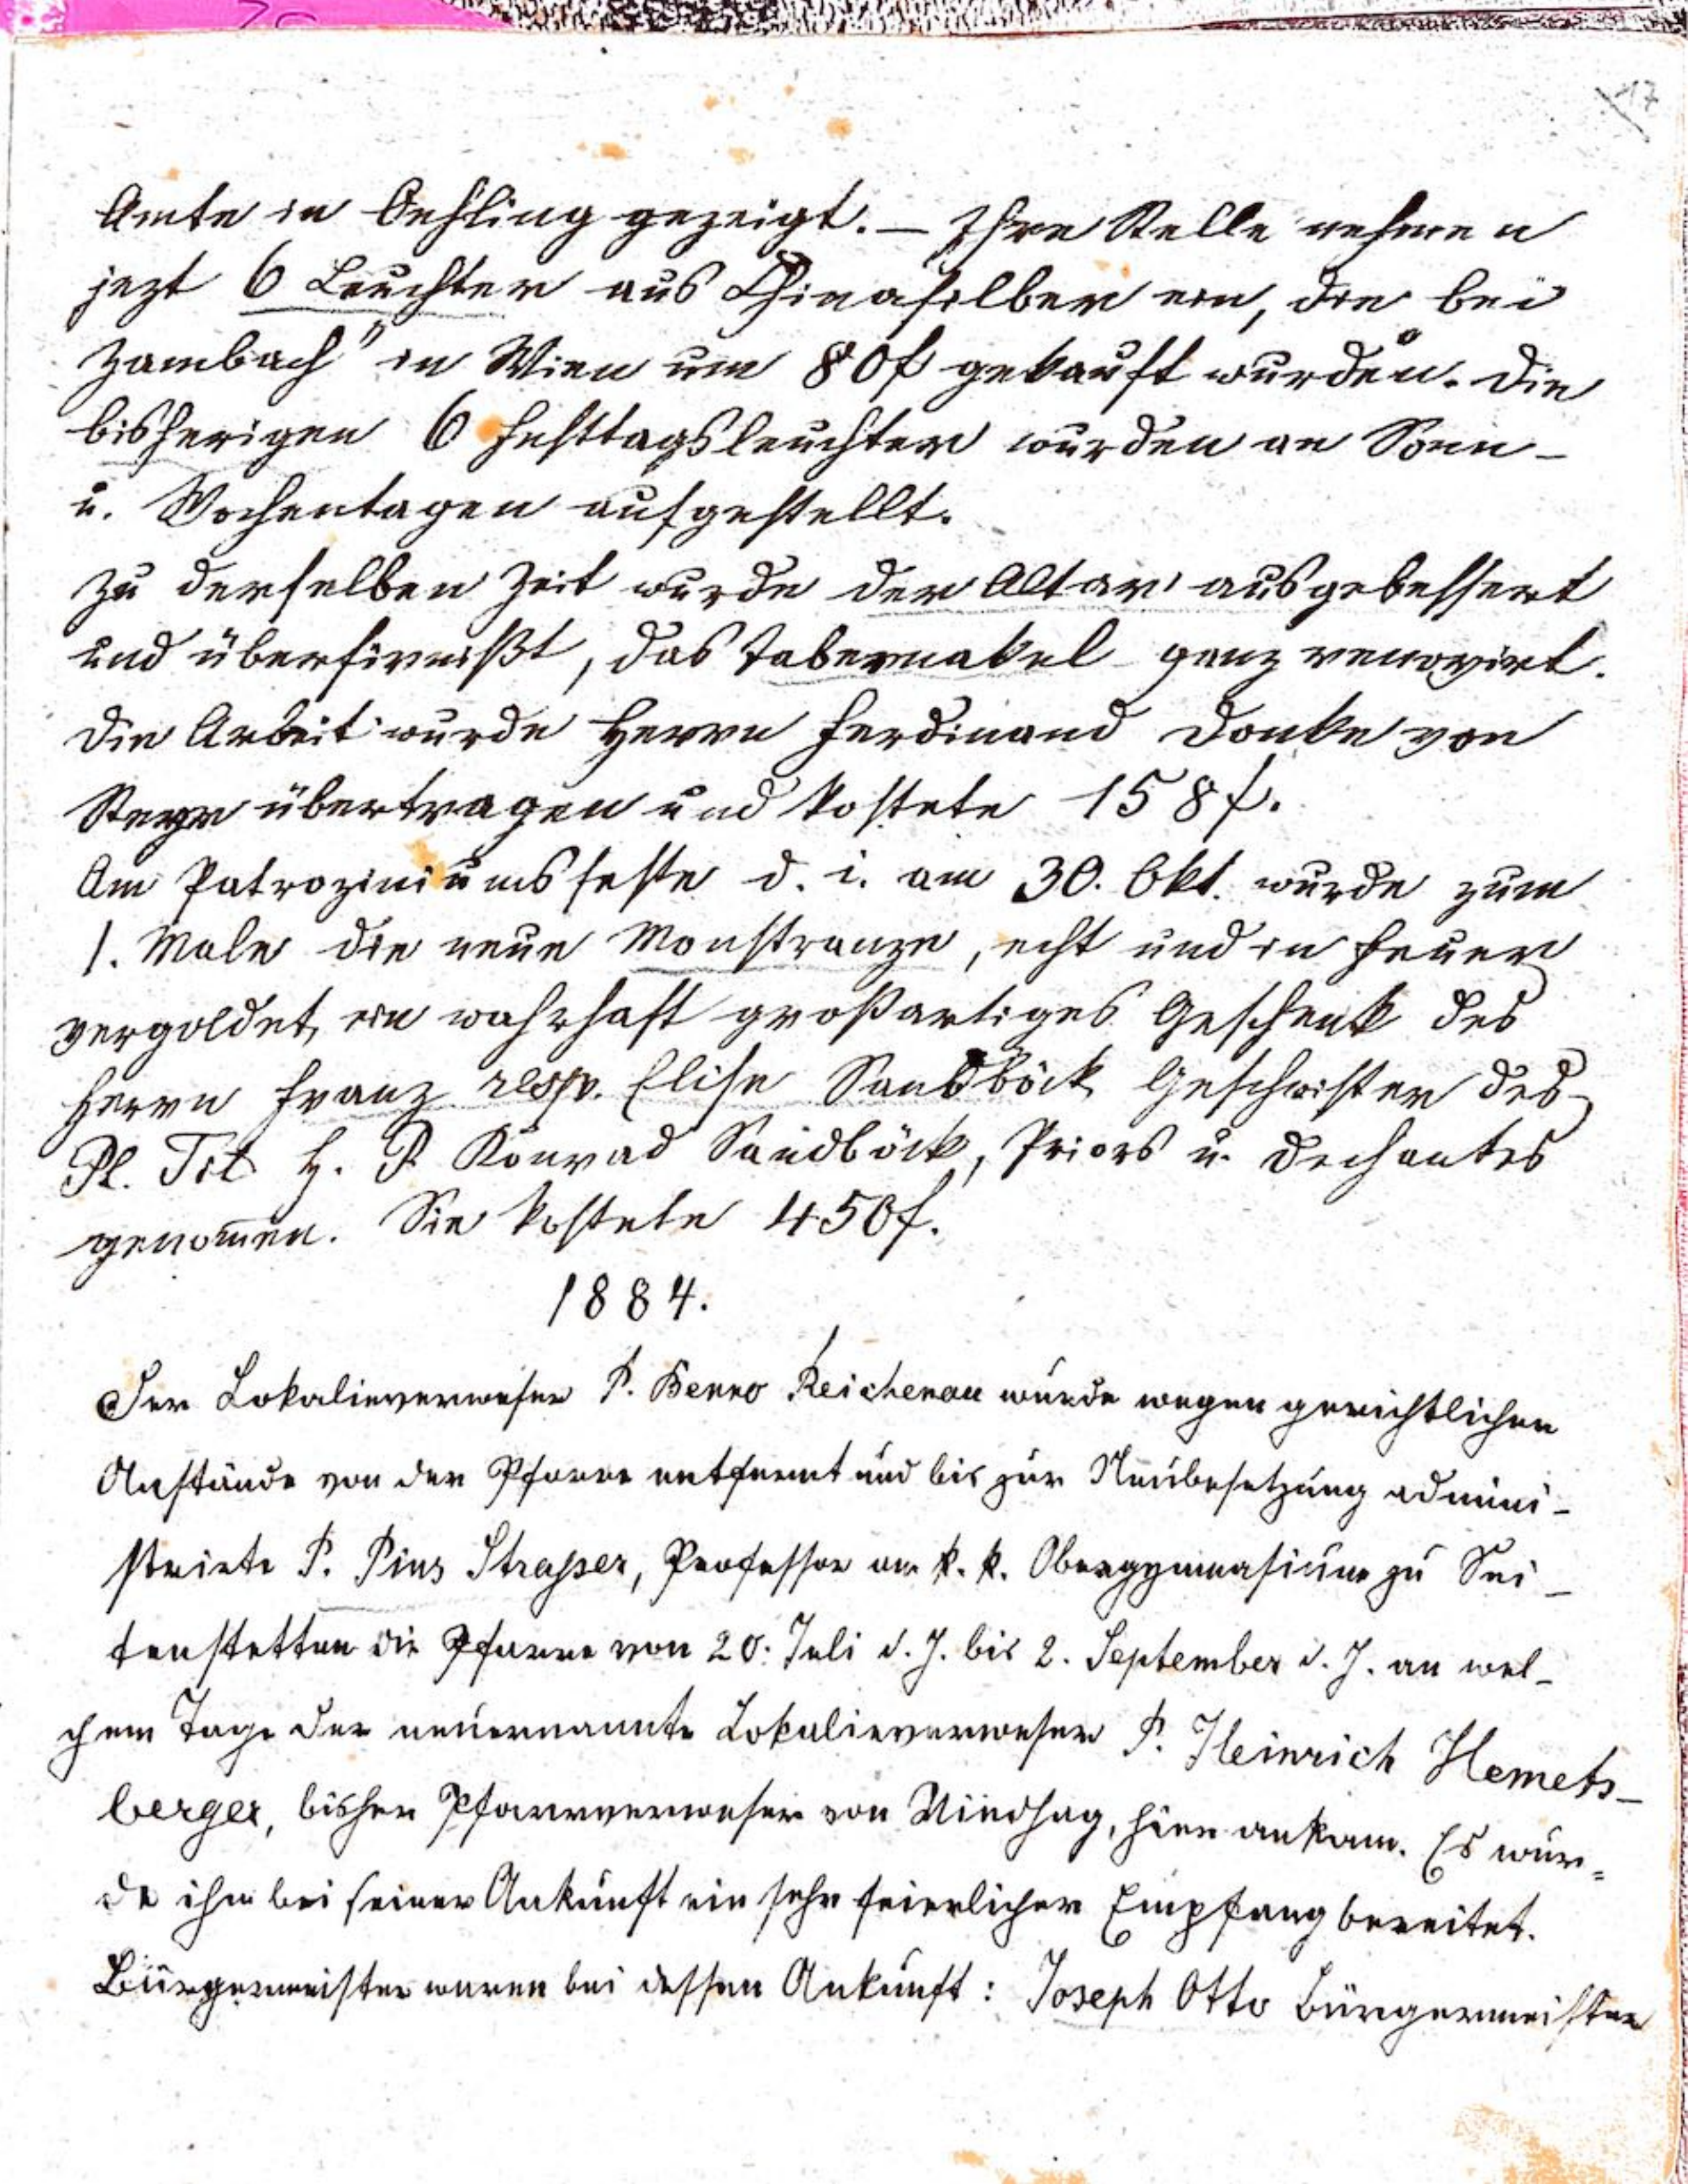 17
Amte in Oehling gezeigt. — Ihre Stelle nehmen
jezt 6 Leuchter aus Chinasilber ein, die bei
Zambach" in Wien um 80f gekauft wurden. Die
bisherigen 6 Festtagsleuchter wurden an Sonn-
u. Wochentagen aufgestellt.
Zu derselben Zeit wurde der Altar ausgebessert
und überfirnißt, das Tabernakel ganz renovirt.
Die Arbeit wurde Herrn Ferdinand Donke von
Steyr übertragen und kostete 158f.
Am Patroziniumsfeste d. i. am 30. Okt. wurde zum
1. Male die neue Monstranze, echt und in Feuer
vergoldet, ein wahrhaft großartiges Geschenk des
Herrn Franz resp. Elise Sandböck Geschwister des
Pl. Tit H. P. Konrad Sandböck, Priors u. Dechantes
genom̄en. Sie kostete 450f.
1884.
Der Lokalieverweser P. Benno Reichenau wurde wegen gerichtlichen
Anstände von der Pfarre entfernt und bis zur Neubesetzung admini-
strirte P. Pius Strasser, Professor am k. k. Obergymnasium zu Sei-
tenstetten die Pfarre von 20. Juli d. J. bis 2. September d. J. an wel-
chem Tage der neuernannte Lokalieverweser P. Heinrich Hemets-
berger, bisher Pfarrverweser von Windhag, hier ankam. Es wur=
de ihm bei seiner Ankunft ein sehr feierlicher Empfang bereitet.
Bürgermeister waren bei dessen Ankunft: Joseph Otto Bürgermeister